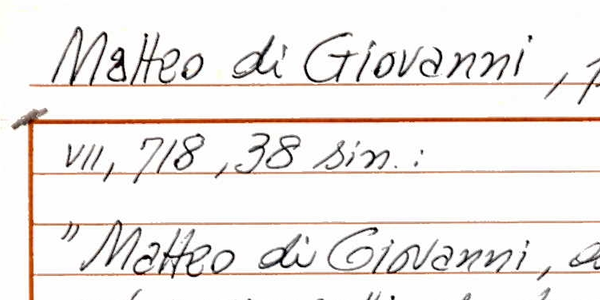 Matteo di Giovanni, p
VII, 718, 38 sin.:
"Matteo di Giovanni,